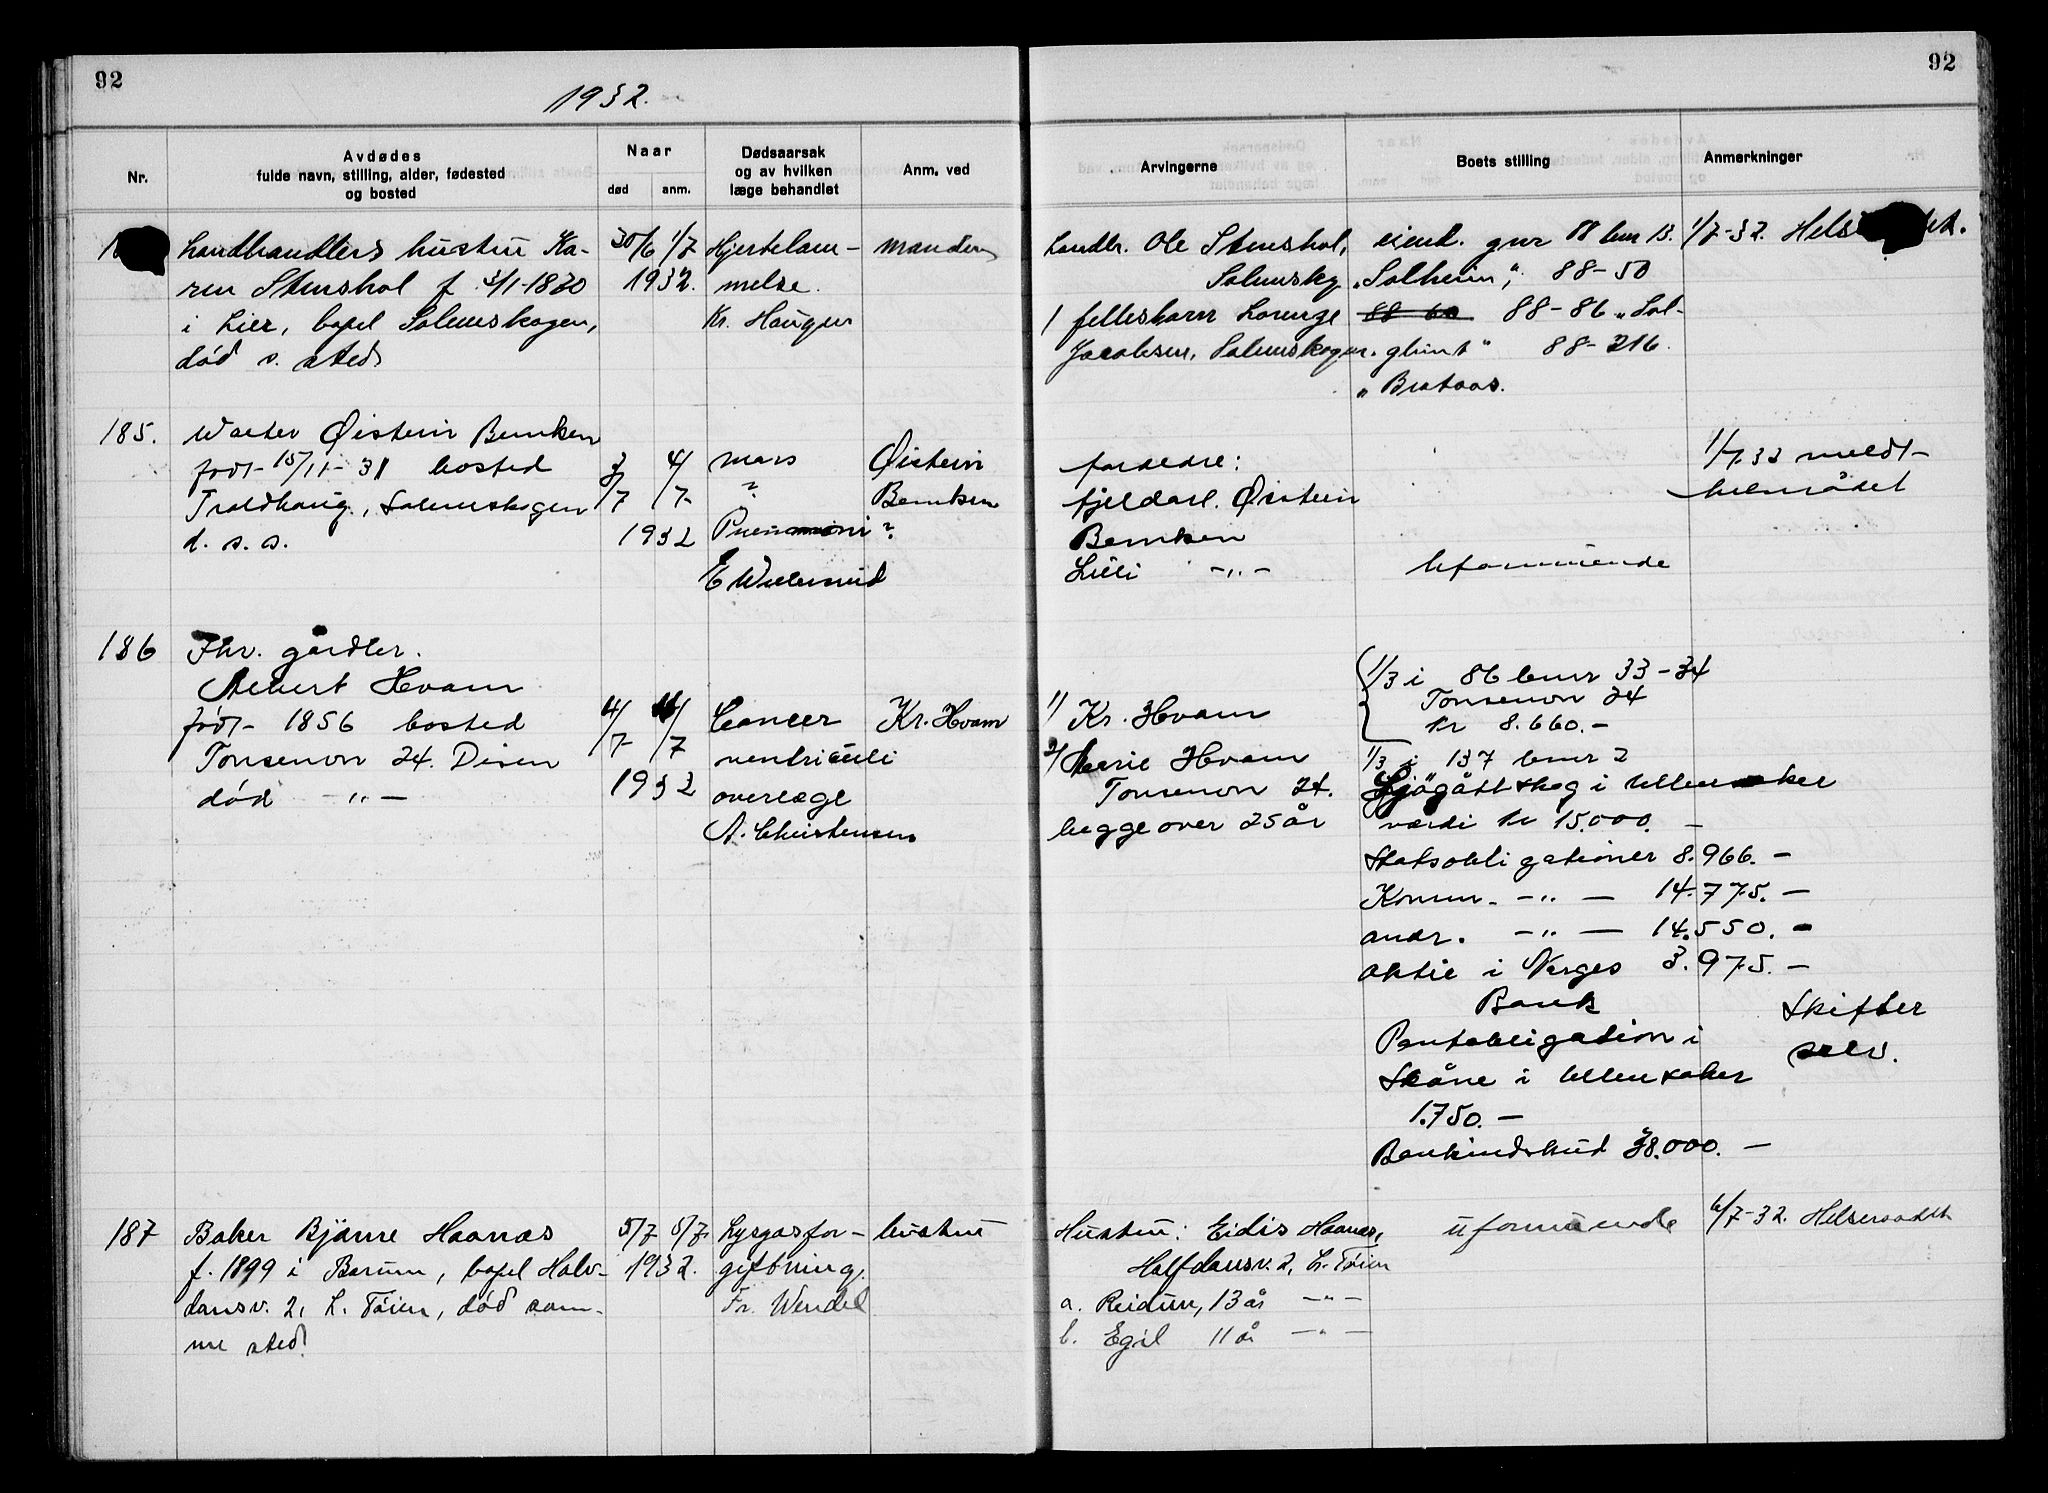 92
92
1932.
Nr.
Avdødes
fulde navn, stilling, alder, fødested
og bosted
Naar
død
anm.
Dødsaarsak
og av hvilken
læge behandlet
Anm. ved
Arvingerne
Boets stilling
Anmerkninger
Landhandlers hustru Ka-
ren Stenshol f. 3/1-1870
i Lier, bopel Solemskogen,
død s. sted
30/6 1/7
1932.
Hjertelam-
melse.
Kr. Haugen
manden
Landh. Ole Stenshol,
Solemskg.
1 fellesbarn Lorenze
Jacobsen, Solemskogen.
eiend. gnr 88 bnr 13.
"Solheim", 88-50
88-60 88-86 "Sol-
glimt" 88-216.
"Brataas.
1/7-32.
185.
Walter Øistein Bemken
født 15/11-31 bosted
Troldhaug, Solemskogen
d. s. s.
3/7 4/7
1932
mors
?
Pneumoni?
Øistein
Bemken
foreldre:
fjeldarb. Øistein
Bemken
Lilli -"-
Uformuende
1/7.32 meldt
helserådet
186
Fhv. gårdbr.
Albert Hvam
født 1856 bosted
Tonsenvn 24. Disen
død -"-
4/7 4/7
1932
Cancer
ventriculi
overlæge
A. Christensen
Kr. Hvam
1/ Kr. Hvam
2/ Marie Hvam
Tonsenvn 24.
begge over 25 år
1/3 i 86 bnr 33-34
Tonsenvn 24
kr 8.660.-
1/3 i 137 bnr 2
skog i Ullensaker
værdi kr 15.000.-
Statsobligationer 8.966.-
Komm. -"- 14.775.-
andr. -"- 14.550.-
aktie i Norges 3.975.-
Bank
Pantobligation i
Skåne i Ullensaker
1.750.-
Bankindskud 38.000.-
Skifter
selv.
187
Baker Bjarne Haanæs
f. 1899 i Bærum, bopel Halv-
dansv. 2, L. Tøien, død sam-
me sted
5/7 5/7
1932.
Lysgasfor-
giftning.
Fr. Wendel
hustru
Hustru: Eidis Haanæs,
Halfdansv. 2, L. Tøien
a. Reidun, 13 år -"-
b. Egil 11 år -"-
uformuende
6/7-32. Helseraadet